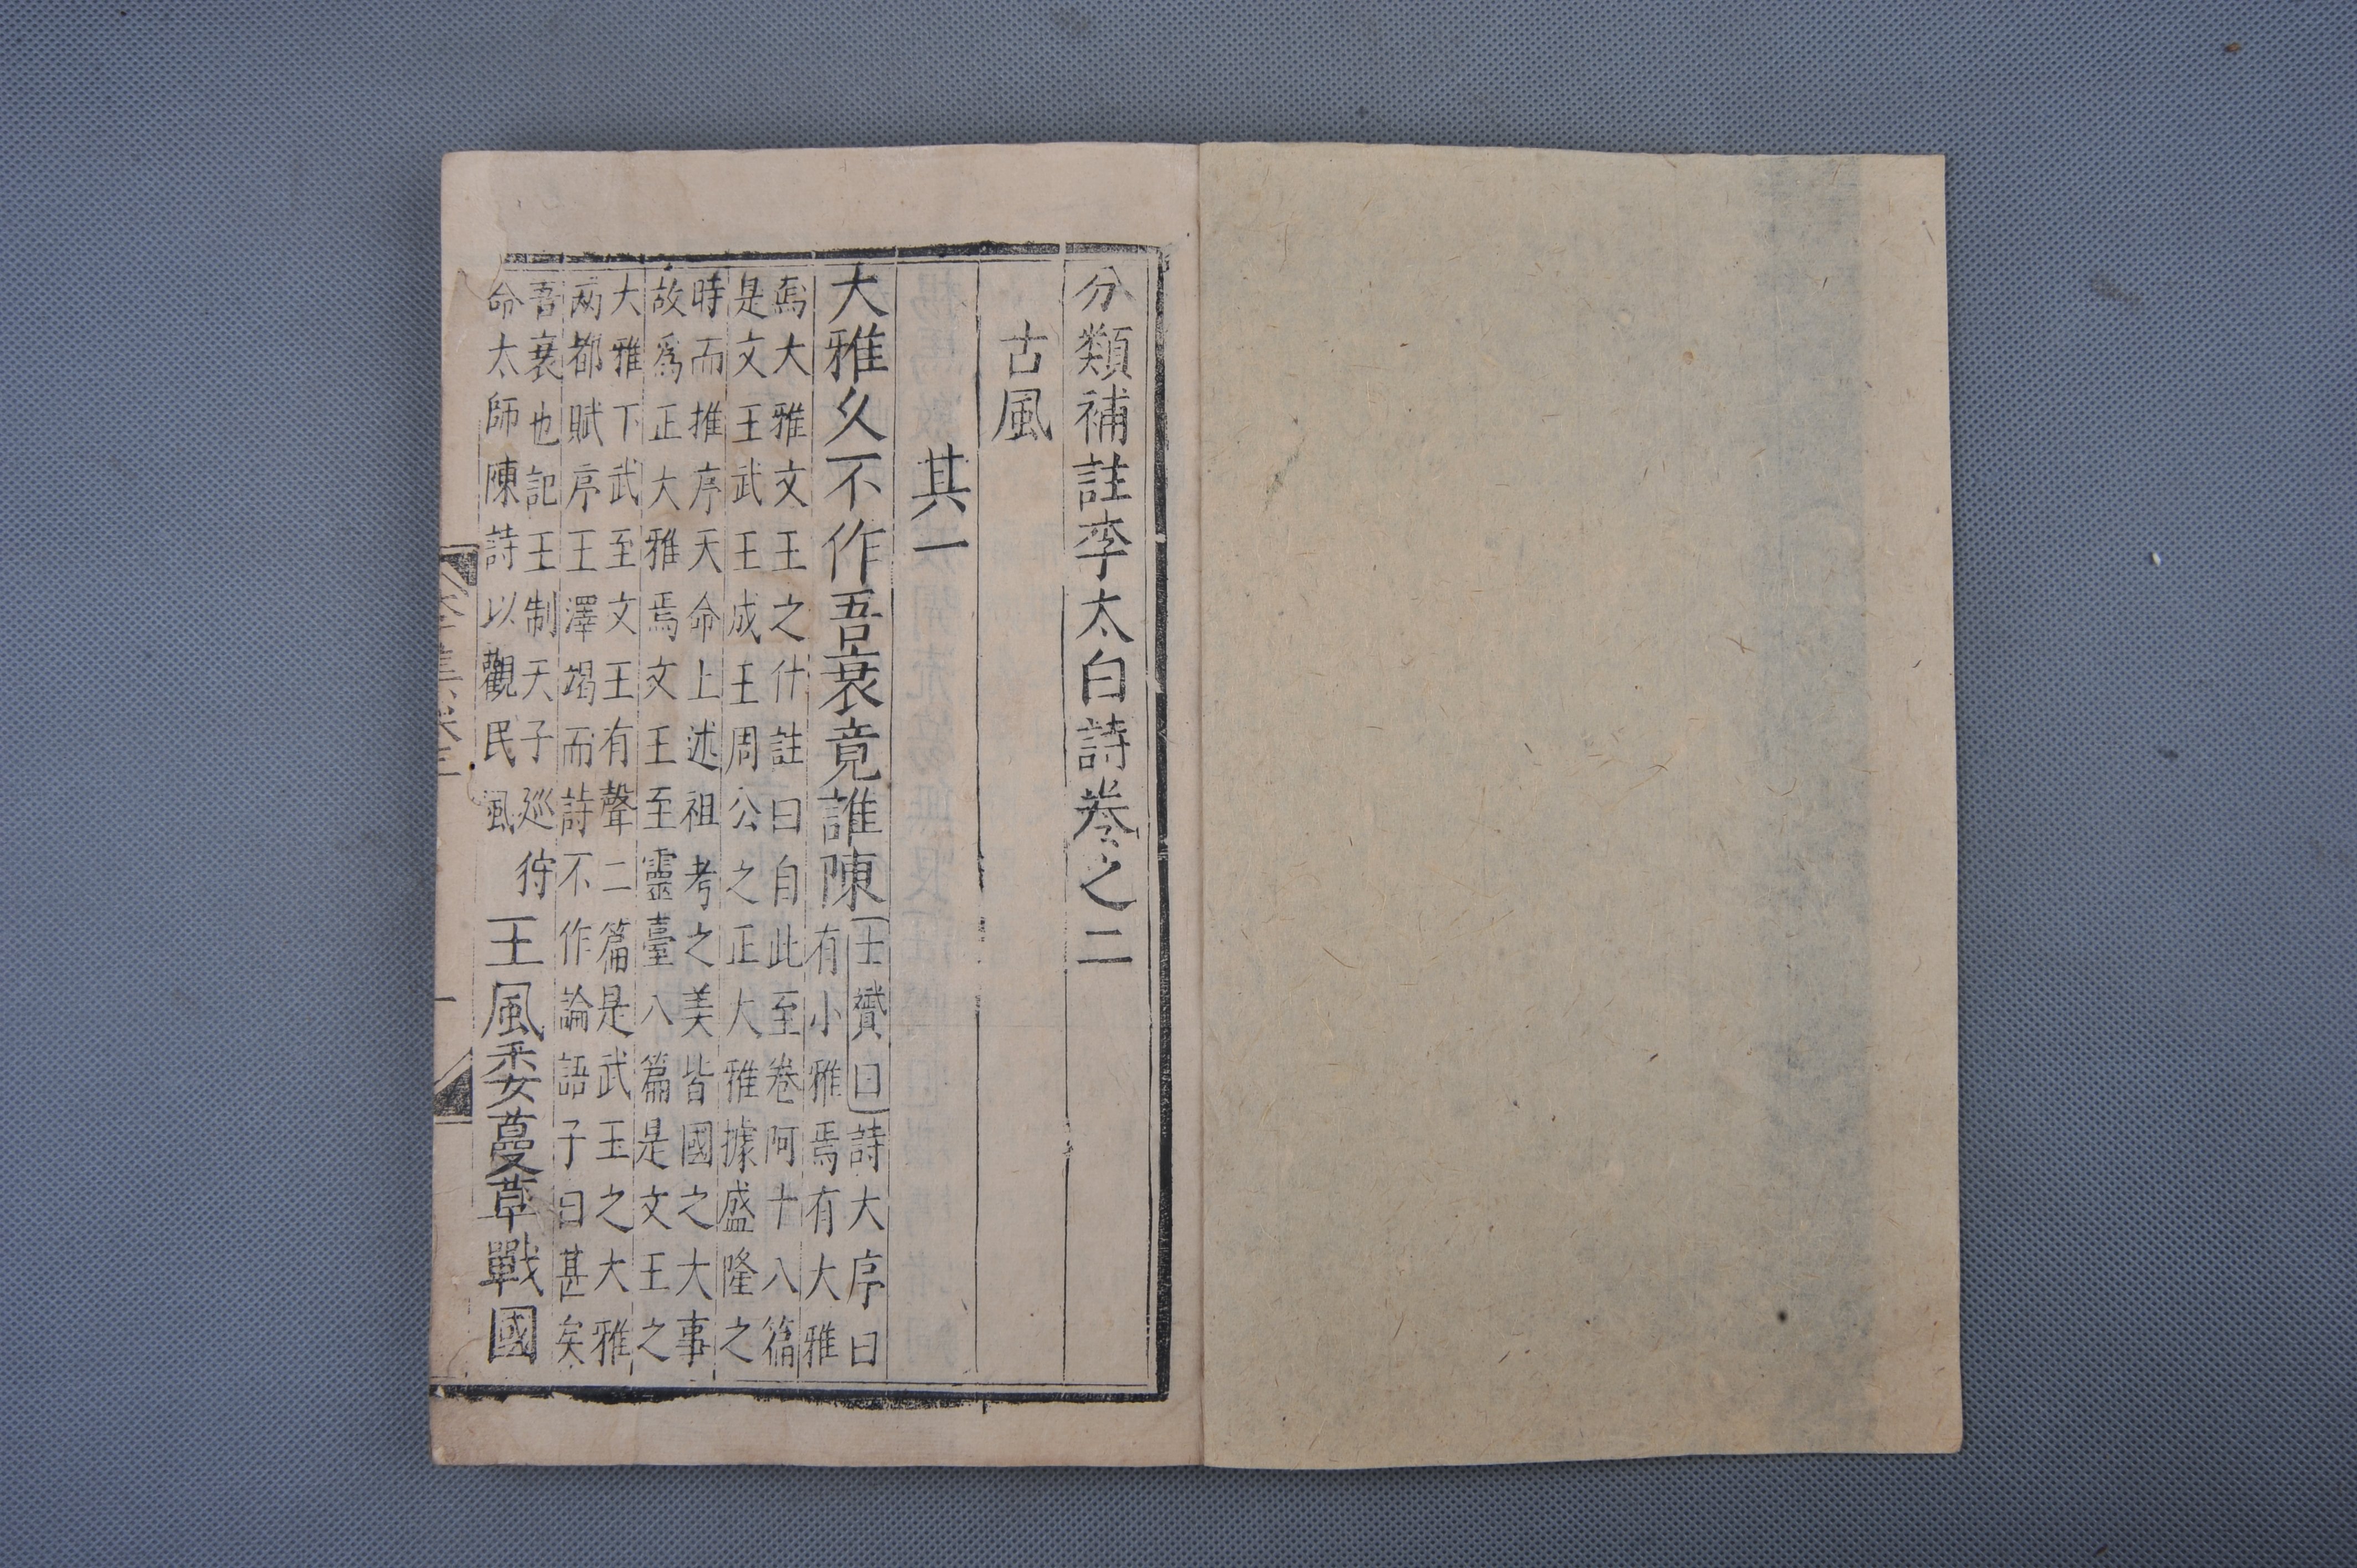 分類補註李太白詩卷之二
古風
其一
大雅久不作吾衰竟誰陳
士贇曰詩大序曰
有小雅焉有大雅
焉大雅文王之什註曰自此至卷阿十八篇
是文王武王成王周公之正大雅據盛隆之
時而推序天命上述祖考之美皆國之大事
故爲正大雅焉文王至靈臺八篇是文王之
大雅下武至文王有聲二篇是武王之大雅
两都賦序王澤竭而詩不作論語子曰甚矣
吾衰也記王制天子廵狩
命太師陳詩以觀民風
王風委蔓草戰國